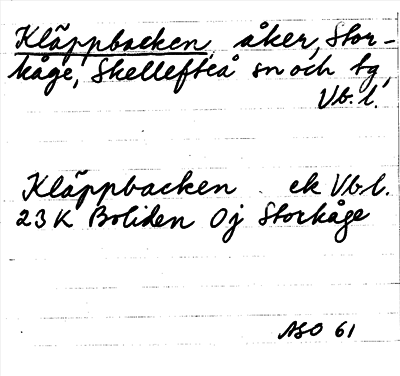 Kläppbacken, åker, Stor-
kåge, Skellefteå sn och tg,
Vb. l.
Kläppbacken ek Vb. l.
23 K Boliden 0j Storkåge
ASO 61